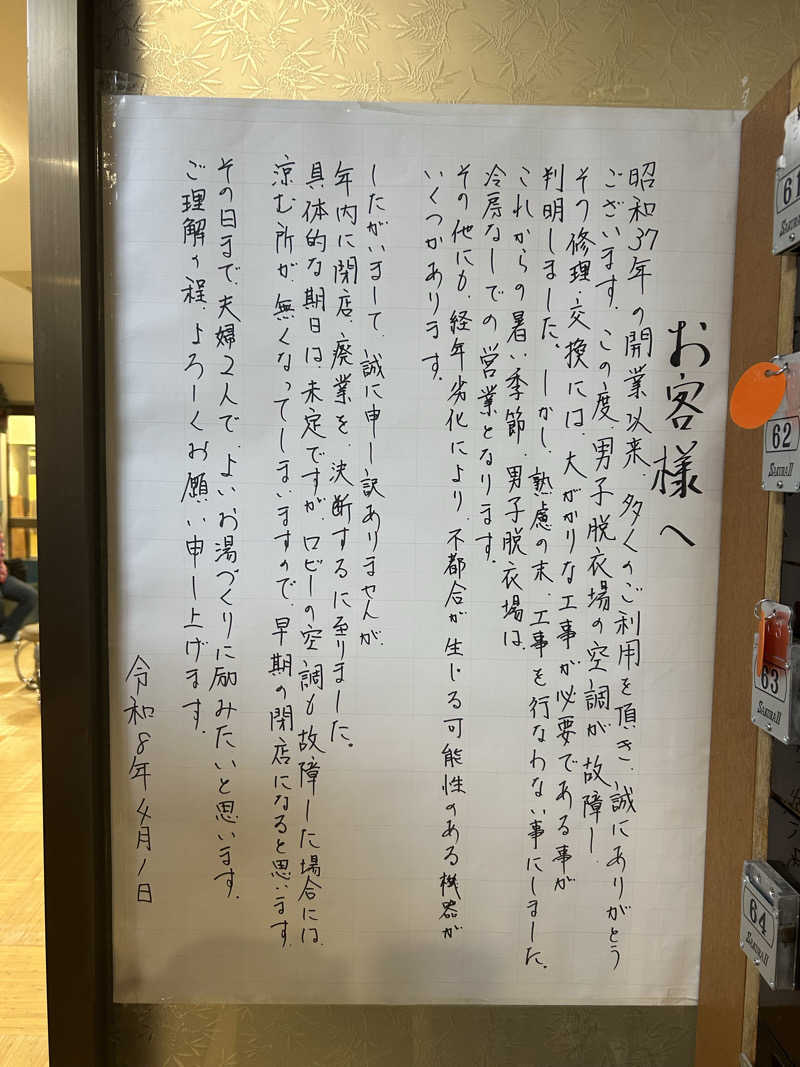 お客様へ
昭和37年の開業以来、多くのご利用を頂き、誠にありがとう
ございます。この度、男子脱衣場の空調が故障し
その修理・交換には、大がかりな工事が必要である事が
判明しました。しかし、熟慮の末、工事を行なわない事にしました。
これからの暑い季節、男子脱衣場は、
冷房なしでの営業となります。
その他にも、経年劣化により、不都合が生じる可能性のある機器が
いくつかあります。
したがいまして、誠に申し訳ありませんが、
年内に閉店、廃業を、決断するに至りました。
具体的な期日は、未定ですが、ロビーの空調も故障した場合には、
涼む所が、無くなってしまいますので、早期の閉店になると思います。
その日まで、夫婦2人で、よいお湯づくりに励みたいと思います。
ご理解の程、よろしくお願い申し上げます。
令和8年4月1日
61
62
SAKURA II
63
SAKURA II
64
SAKURA II